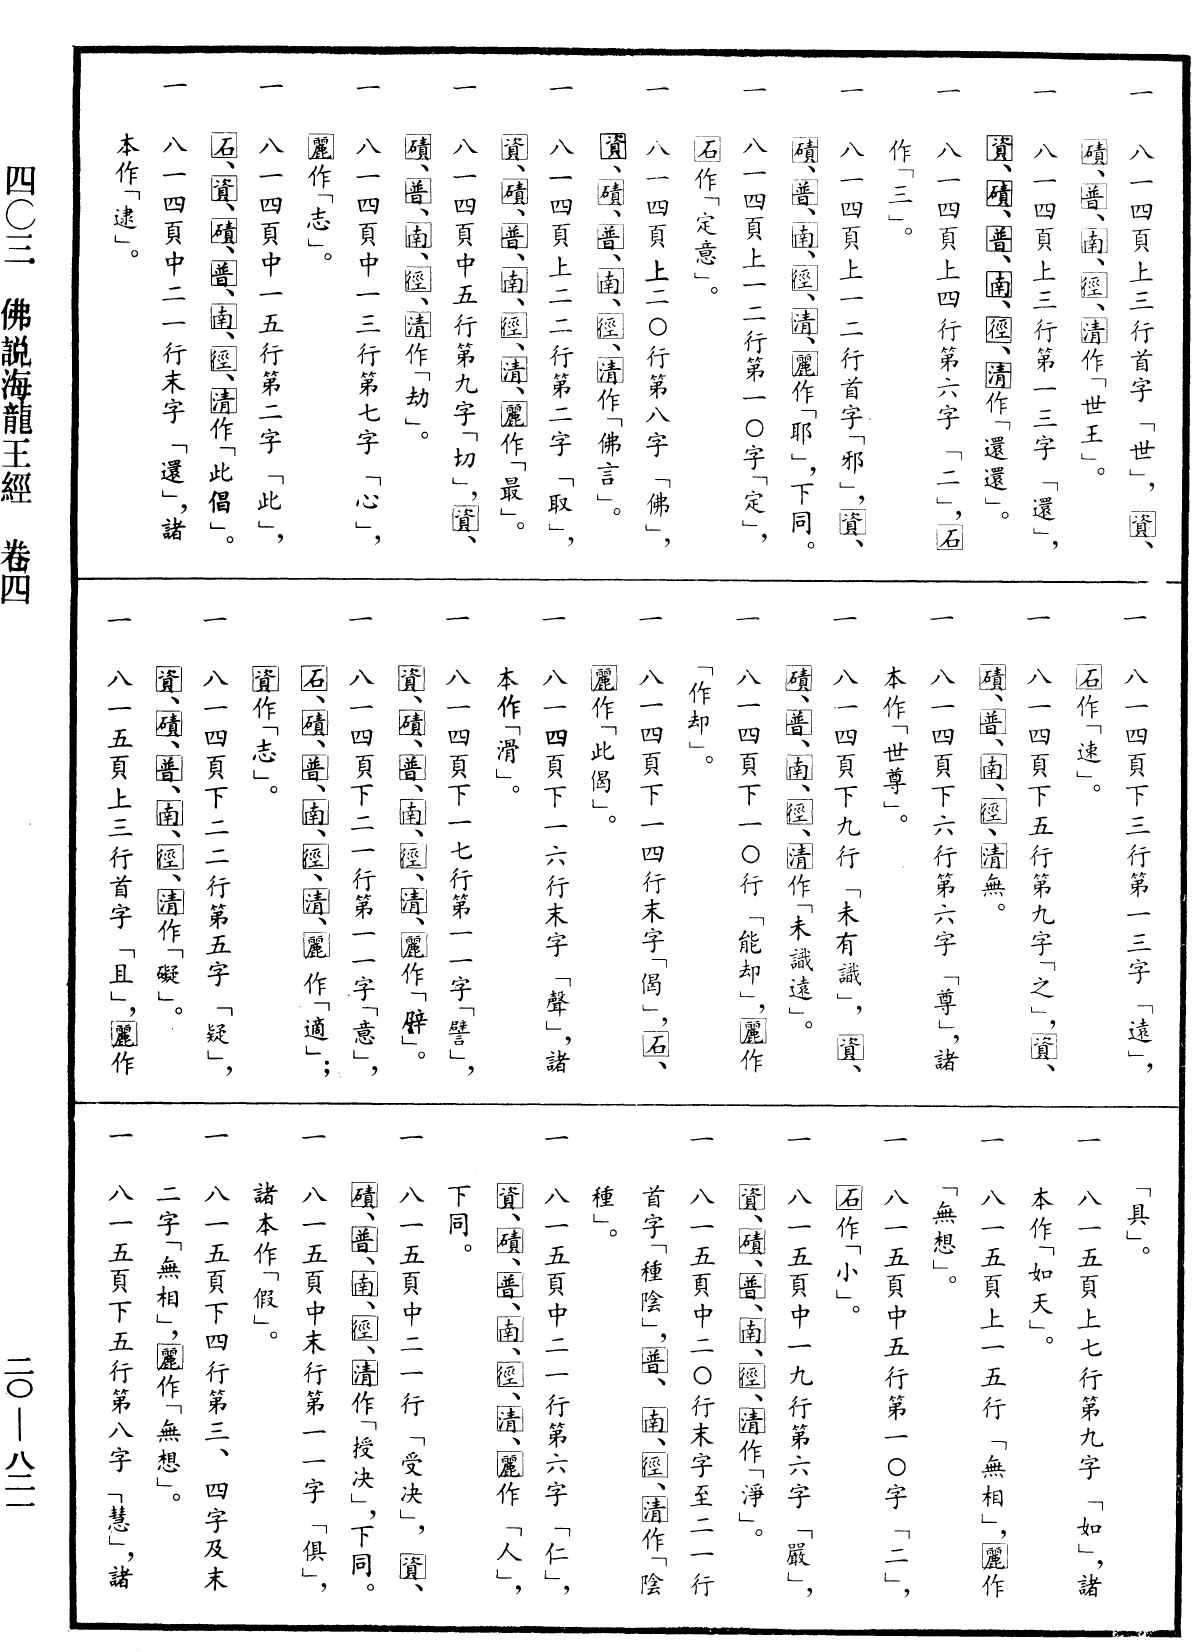 一　八一四頁上三行首字「世」，資、
磧、普、南、徑、清作「世王」。
一　八一四頁上三行第一三字「還」，
資、磧、普、南、徑、清作「還還」。
一　八一四頁上四行第六字「二」，石
作「三」。
一　八一四頁上一二行首字「邪」，資、
磧、普、南、徑、清、麗作「耶」，下同。
一　八一四頁上一二行第一〇字「定」，
石作「定意」。
一　八一四頁上二〇行第八字「佛」，
資、磧、普、南、徑、清作「佛言」。
一　八一四頁上二二行第二字「取」，
資、磧、普、南、徑、清、麗作「最」。
一　八一四頁中五行第九字「切」，資、
磧、普、南、徑、清作「劫」。
一　八一四頁中一三行第七字「心」，
麗作「志」。
一　八一四頁中一五行第二字「此」，
石、資、磧、普、南、徑、清作「此倡」。
一　八一四頁中二一行末字「還」，諸
本作「逮」。
一　八一四頁下三行第一三字「遠」，
石作「速」。
一　八一四頁下五行第九字「之」，資、
磧、普、南、徑、清無。
一　八一四頁下六行第六字「尊」，諸
本作「世尊」。
一　八一四頁下九行「未有識」，資、
磧、普、南、徑、清作「未識遠」。
一　八一四頁下一〇行「能却」，麗作
「作却」。
一　八一四頁下一四行末字「偈」，石、
麗作「此偈」。
一　八一四頁下一六行末字「聲」，諸
本作「滑」。
一　八一四頁下一七行第一一字「譬」，
資、磧、普、南、徑、清、麗作「辟」。
一　八一四頁下二一行第一一字「意」，
石、磧、普、南、徑、清、麗作「適」；
資作「志」。
一　八一四頁下二二行第五字「疑」，
資、磧、普、南、徑、清作「礙」。
一　八一五頁上三行首字「且」，麗作
「具」。
一　八一五頁上七行第九字「如」，諸
本作「如天」。
一　八一五頁上一五行「無相」，麗作
「無想」。
一　八一五頁中五行第一〇字「二」，
石作「小」。
一　八一五頁中一九行第六字「嚴」，
資、磧、普、南、徑、清作「淨」。
一　八一五頁中二〇行末字至二一行
首字「種陰」，普、南、徑、清作「陰
種」。
一　八一五頁中二一行第六字「仁」，
資、磧、普、南、徑、清、麗作「人」，
下同。
一　八一五頁中二一行「受决」，資、
磧、普、南、徑、清作「授决」，下同。
一　八一五頁中末行第一一字「俱」，
諸本作「假」。
一　八一五頁下四行第三、四字及末
二字「無相」，麗作「無想」。
一　八一五頁下五行第八字「慧」，諸
四〇三　佛説海龍王經　卷四
二〇—八二一